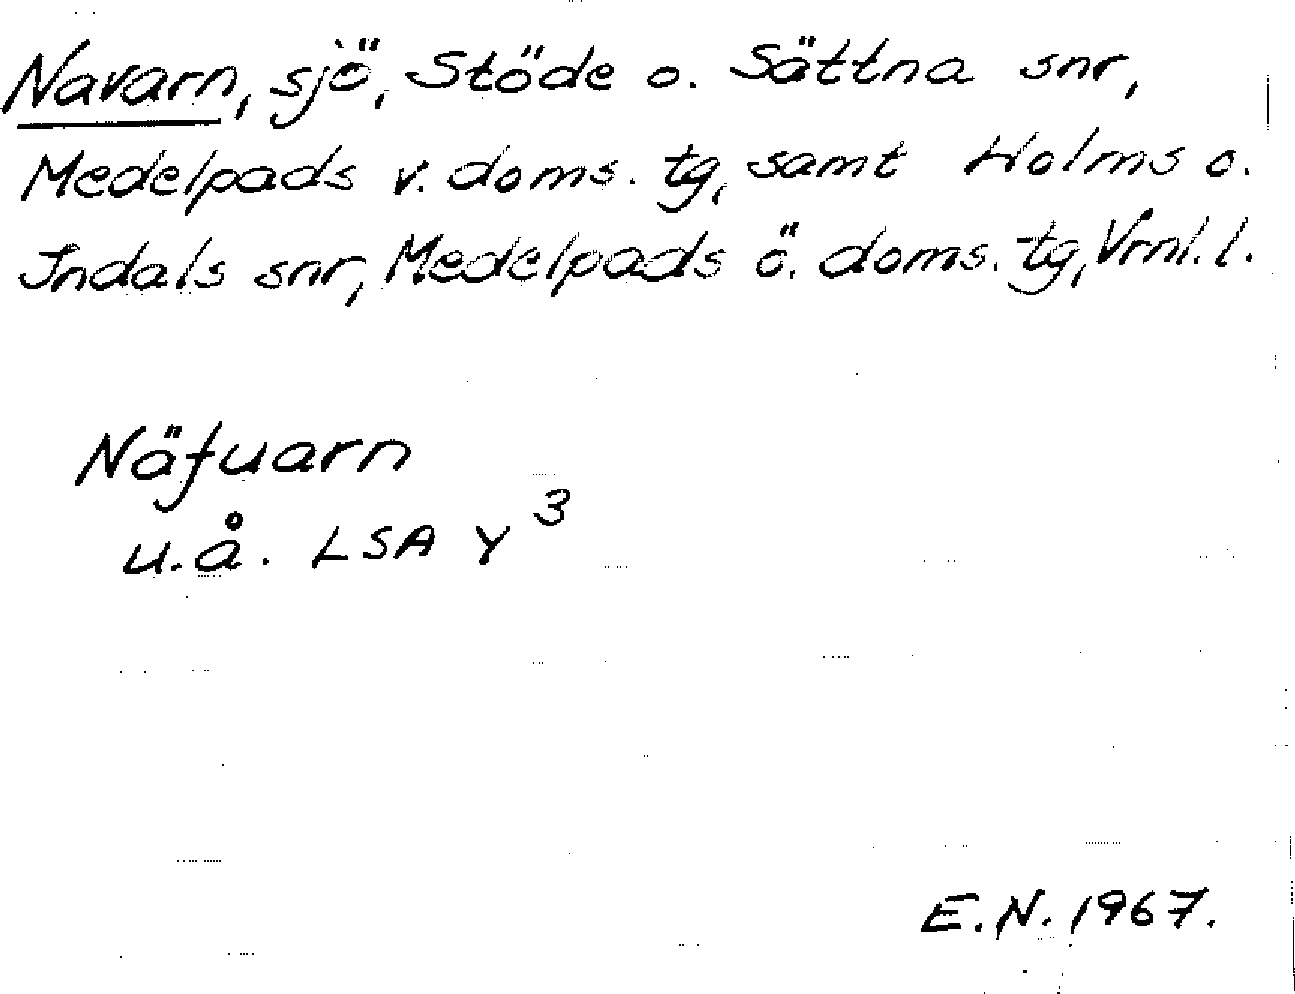 Navarn, sjö, Stöde o. Sättna snr,
Medelpads v. doms. tg, samt Holms o.
Indals snr, Medelpads ö. doms. tg, Vrnl. l.
Näfuarn
u.å. LSA Y 3
E.N. 1967.